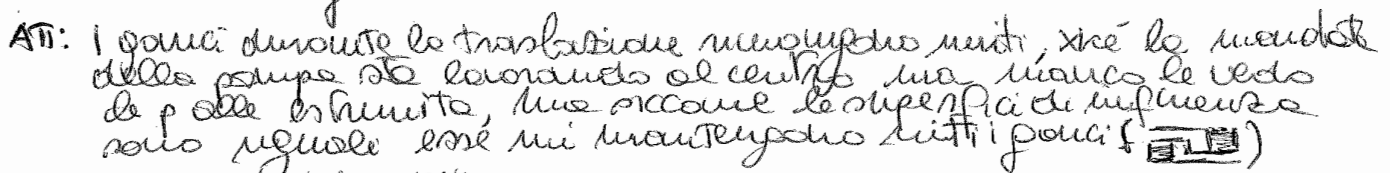 ATT: I ganci durante la traslazione rimangono uniti, xké la mandata
della pompa sta lavorando al centro ma manca
alle estremità, ma siccome le superfici di influenza
sono uguali esse mi mantengono uniti i ganci ( )